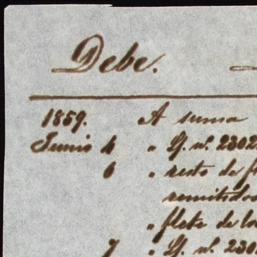 Debe.
1859. A suma
Junio 4 " G. nº. 2302
6 " resto de f
remitidos
" flete de lo
7 " G. nº. 230